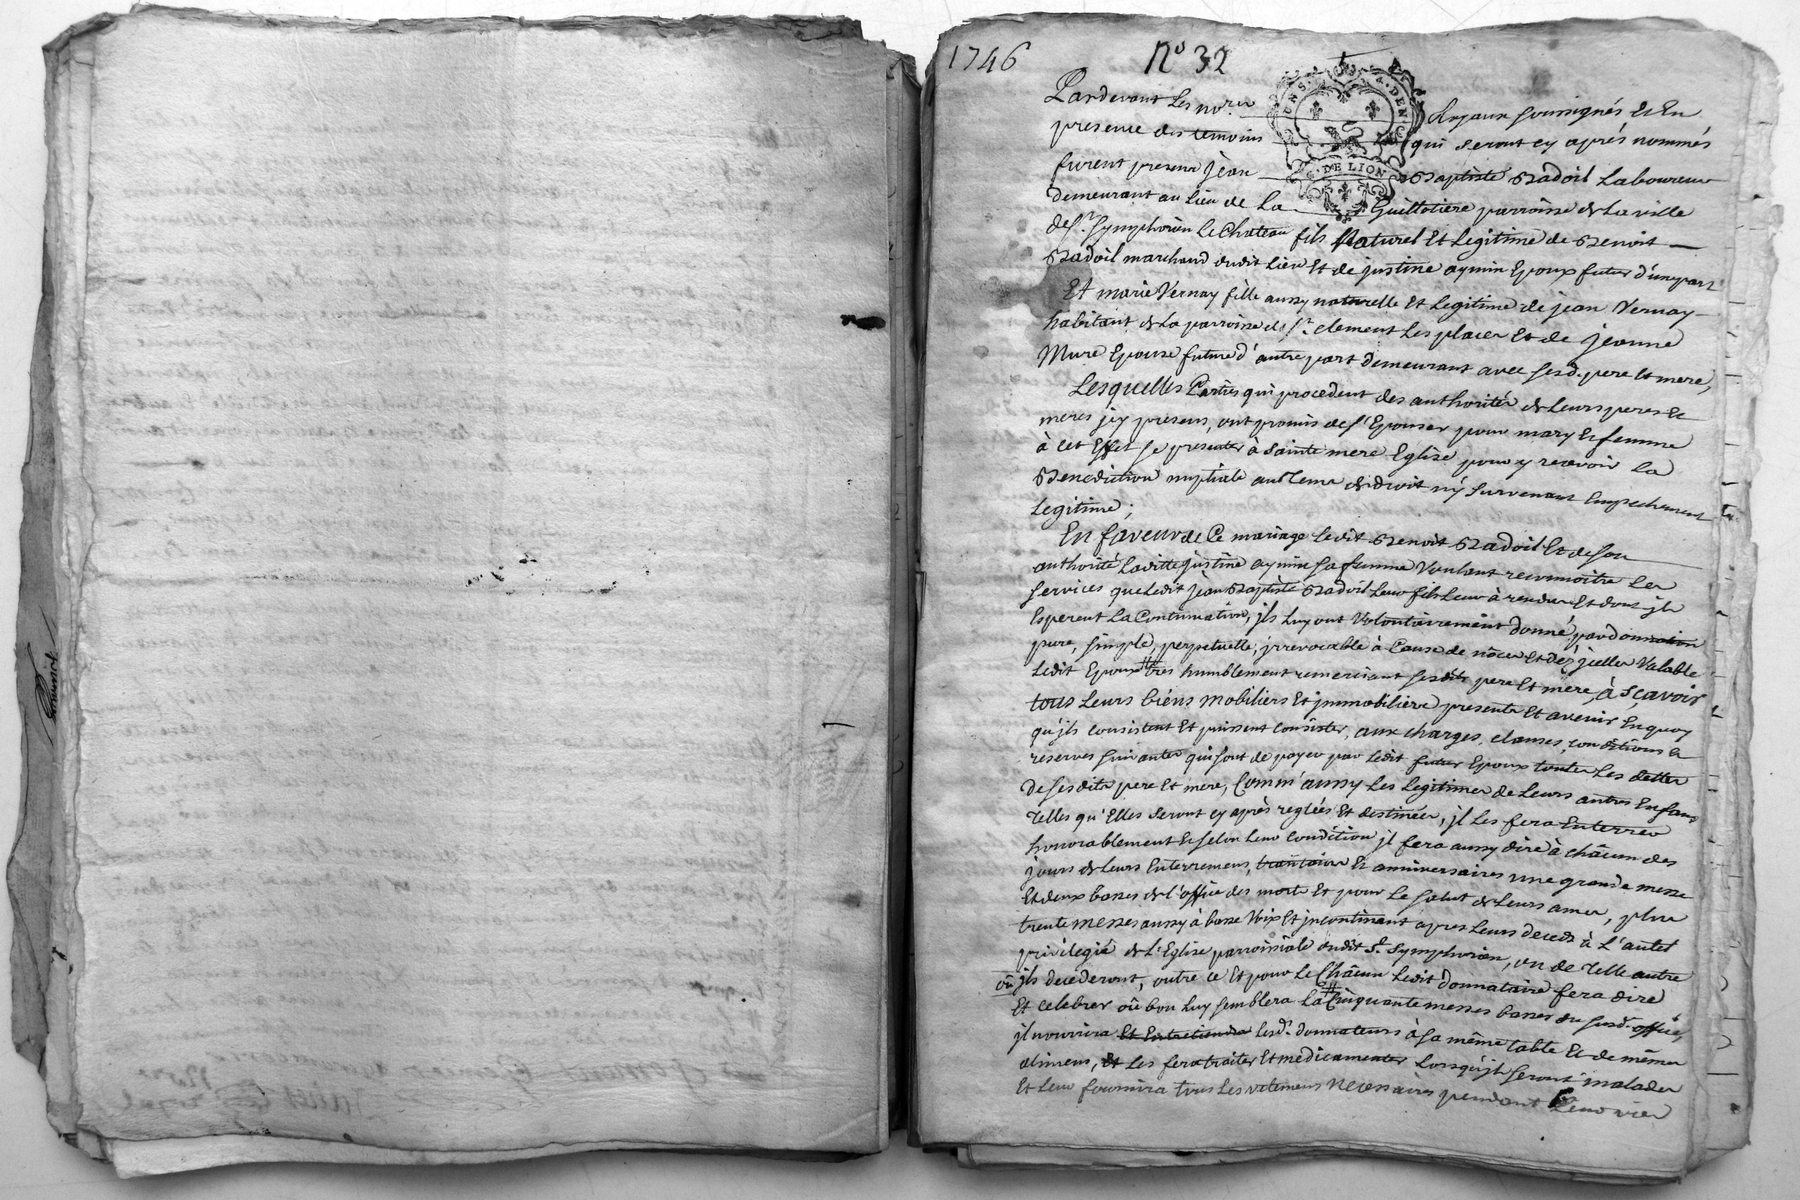 1746
N° 32
GENS. DEN. G. DE LION
Pardevant Les no.res Royaux soussignés Et En
presence des temoins qui seront cy après nommés
furent presens jean Baptiste Badoil Laboureur
demeurant au Lieu de La Guillotiere parroisse de La ville
de St. Symphorien Le Chateau fils Naturel Et Legitime de Benoit
Badoil marchand dudit Lieu Et de justine aymin Epoux futur d'une part
Et marie Vernay fille aussy naturelle Et Legitime de jean Vernay
habitant de La parroisse de St. clement Les places Et de jeanne
Mure Epouse future d'autre part demeurant avec sesd. pere Et mere,
Lesquelles Parties qui procedent des authorités de Leurs peres Et
meres jcy presens, ont promis de s'Epouser pour mary Et femme
à cet Effet se presenter à sainte mere Eglise pour y recevoir La
Benediction nuptiale au Tems de droit n'y survenant Empechement
Legitime;
En faveur de Ce mariage Ledit Benoit Badoil Et de son
authorité Laditte justine aymin sa femme Voulant reconnoitre Les
services que Ledit jean Baptiste Badoil Leur fils Leur à rendus Et dont jls
Esperent La Continuation, jls Luy ont Volontairement donné, par donation
pure, simple, perpetuelle, jrrevocable à Cause de nôces Et dez jcelles Valable
Ledit Epoux # tres humblement remerciant sesdits pere Et mere, à sçavoir
tous Leurs biens mobiliers Et jmmobiliers presents Et avenir En quoy
qu'jls consistent Et puissent consister, aux charges, clauses, conditions Et
reserves suivantes qui sont de payer par Ledit futur Epoux toutes Les dettes
de sesdits pere Et mere, Comm'aussy Les Legitimes de Leurs autres Enfans
Telles qu'Elles seront cy après reglées Et destinées, jl Les fera Enterrer
honnorablement Et selon Leur condition jl fera aussy dire à châcun des
jours de Leurs Enterremens, trantaine Et anniversaires une grande messe
Et deux basses de l'office des morts Et pour Le salut de Leurs ames, plus
trente messes aussy à basse Voix Et jncontinant apres Leurs deceds à L'autel
privilegié de L'Eglise parroissiale dudit St. Symphorien, ou de Telle autre
où jls decederont, outre ce Et pour Le Châcun Ledit donnataire fera dire
Et celebrer où bon Luy semblera La # Cinquante messes basses du susd. office,
jl nourrira Et Entretiendra Lesd. donnateurs à sa même table Et de mêmes
alimens, Et Les fera traiter Et medicamenter Lorsqu'jls seront malades
Et Leur fournira tous Les vetemens necessaires pendant Leur vies